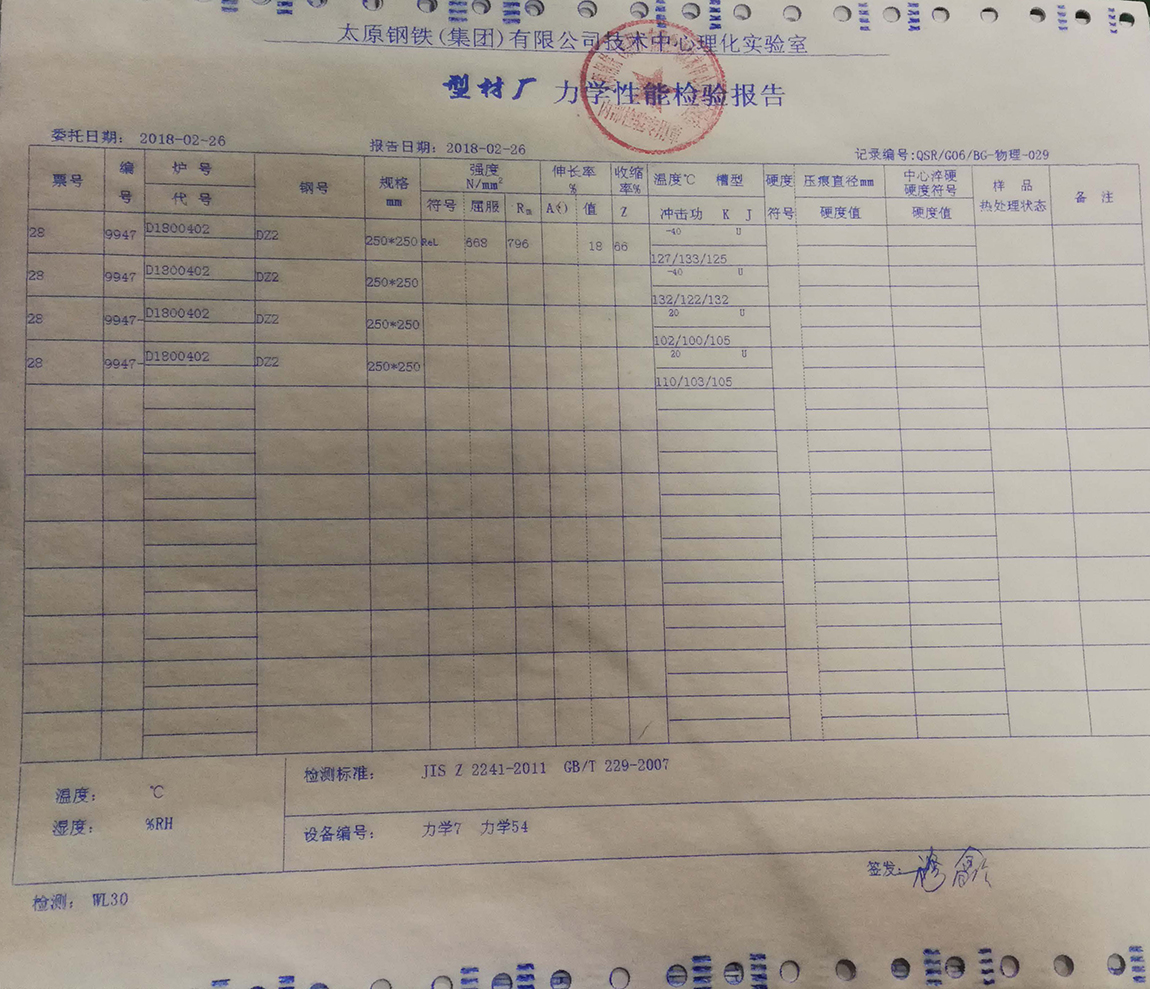 太原钢铁(集团)有限公司技术中心理化实验室
型材厂 力学性能检验报告
委托日期: 2018-02-26
报告日期: 2018-02-26
记录编号:QSR/G06/BG-物理-029
票号 编号 炉号 代号 钢号 规格 mm 强度 N/mm² 符号 屈服 Rm 伸长率 % A() 值 收缩率% Z 温度℃ 槽型 冲击功 K J 硬度符号 压痕直径mm 硬度值 中心淬硬硬度符号 硬度值 样品热处理状态 备注
28 9947 D1800402 DZ2 250*250 ReL 668 796 18 66 -40 U
127/133/125
28 9947 D1800402 DZ2 250*250 -40 U
132/122/132
28 9947- D1800402 DZ2 250*250 20 U
102/100/105
28 9947- D1800402 DZ2 250*250 20 U
110/103/105
温度: ℃
湿度: %RH
检测标准: JIS Z 2241-2011 GB/T 229-2007
设备编号: 力学7 力学54
签发:
检测: WL30